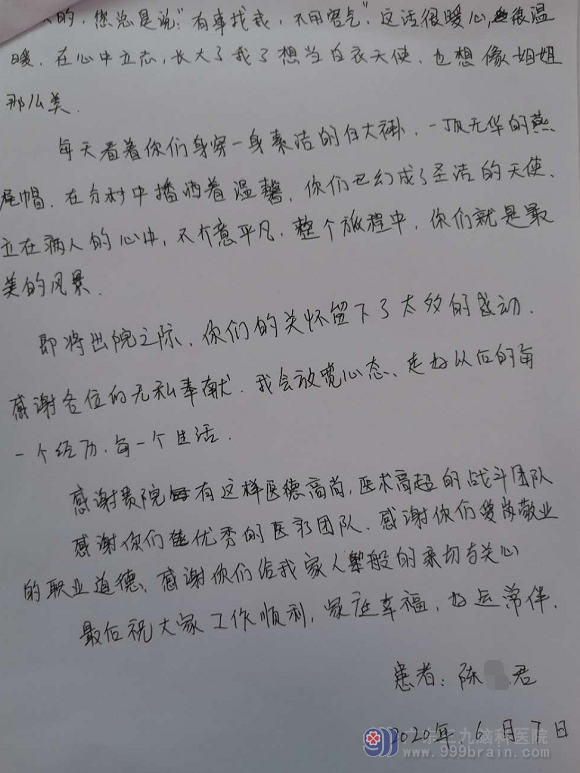 的，您总是说"有事找我，不用客气"。这话很暖心，很温
暖。在心中立志，长大了我了想当白衣天使，也想像姐姐
那么美。
每天看着你们身穿一身素洁的白大褂，一顶无华的燕
尾帽，在分秒中播洒着温馨，你们已幻成了圣洁的天使，
立在病人的心中，不介意平凡，整个旅程中，你们就是最
美的风景。
即将出院之际，你们的关怀留下了太多的感动。
感谢各位的无私奉献，我会放宽心态、走好以后的每
一个经历，每一个生活。
感谢贵院有这样医德高尚，医术高超的战斗团队
感谢你们优秀的医护团队、感谢你们爱岗敬业
的职业道德、感谢你们给我家人般的亲切与关心
最后祝大家工作顺利，家庭幸福，好运常伴。
患者：陈 君
2020年6月7日
三九脑科医院
www.999brain.com